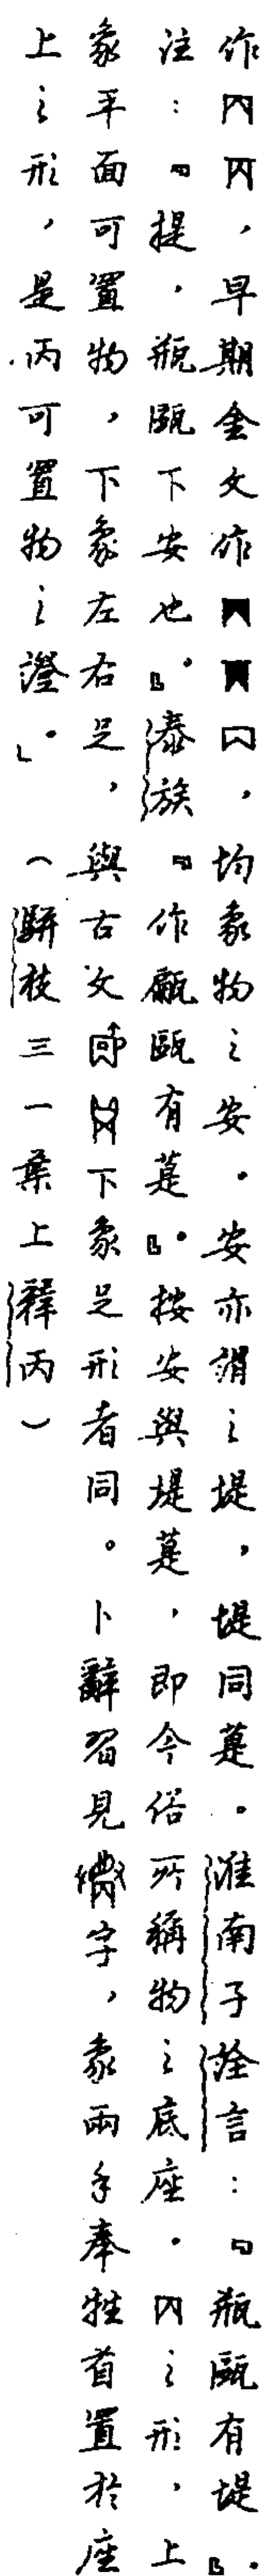 作，早期金文作，均象物之安。安亦謂之堤，堤同菶。淮南子詮言：「瓶甌有堤」。
注：「提，瓶甌下安也」。泰族「作甂甌有菶」。按安與堤菶，即今俗所稱物之底座。之形，上
象平面可置物，下象左右足，與古文下象足形者同。卜辭習見字，象兩手奉牲首置於座
上之形，是丙可置物之證。」（駢枝三一葉上釋丙）